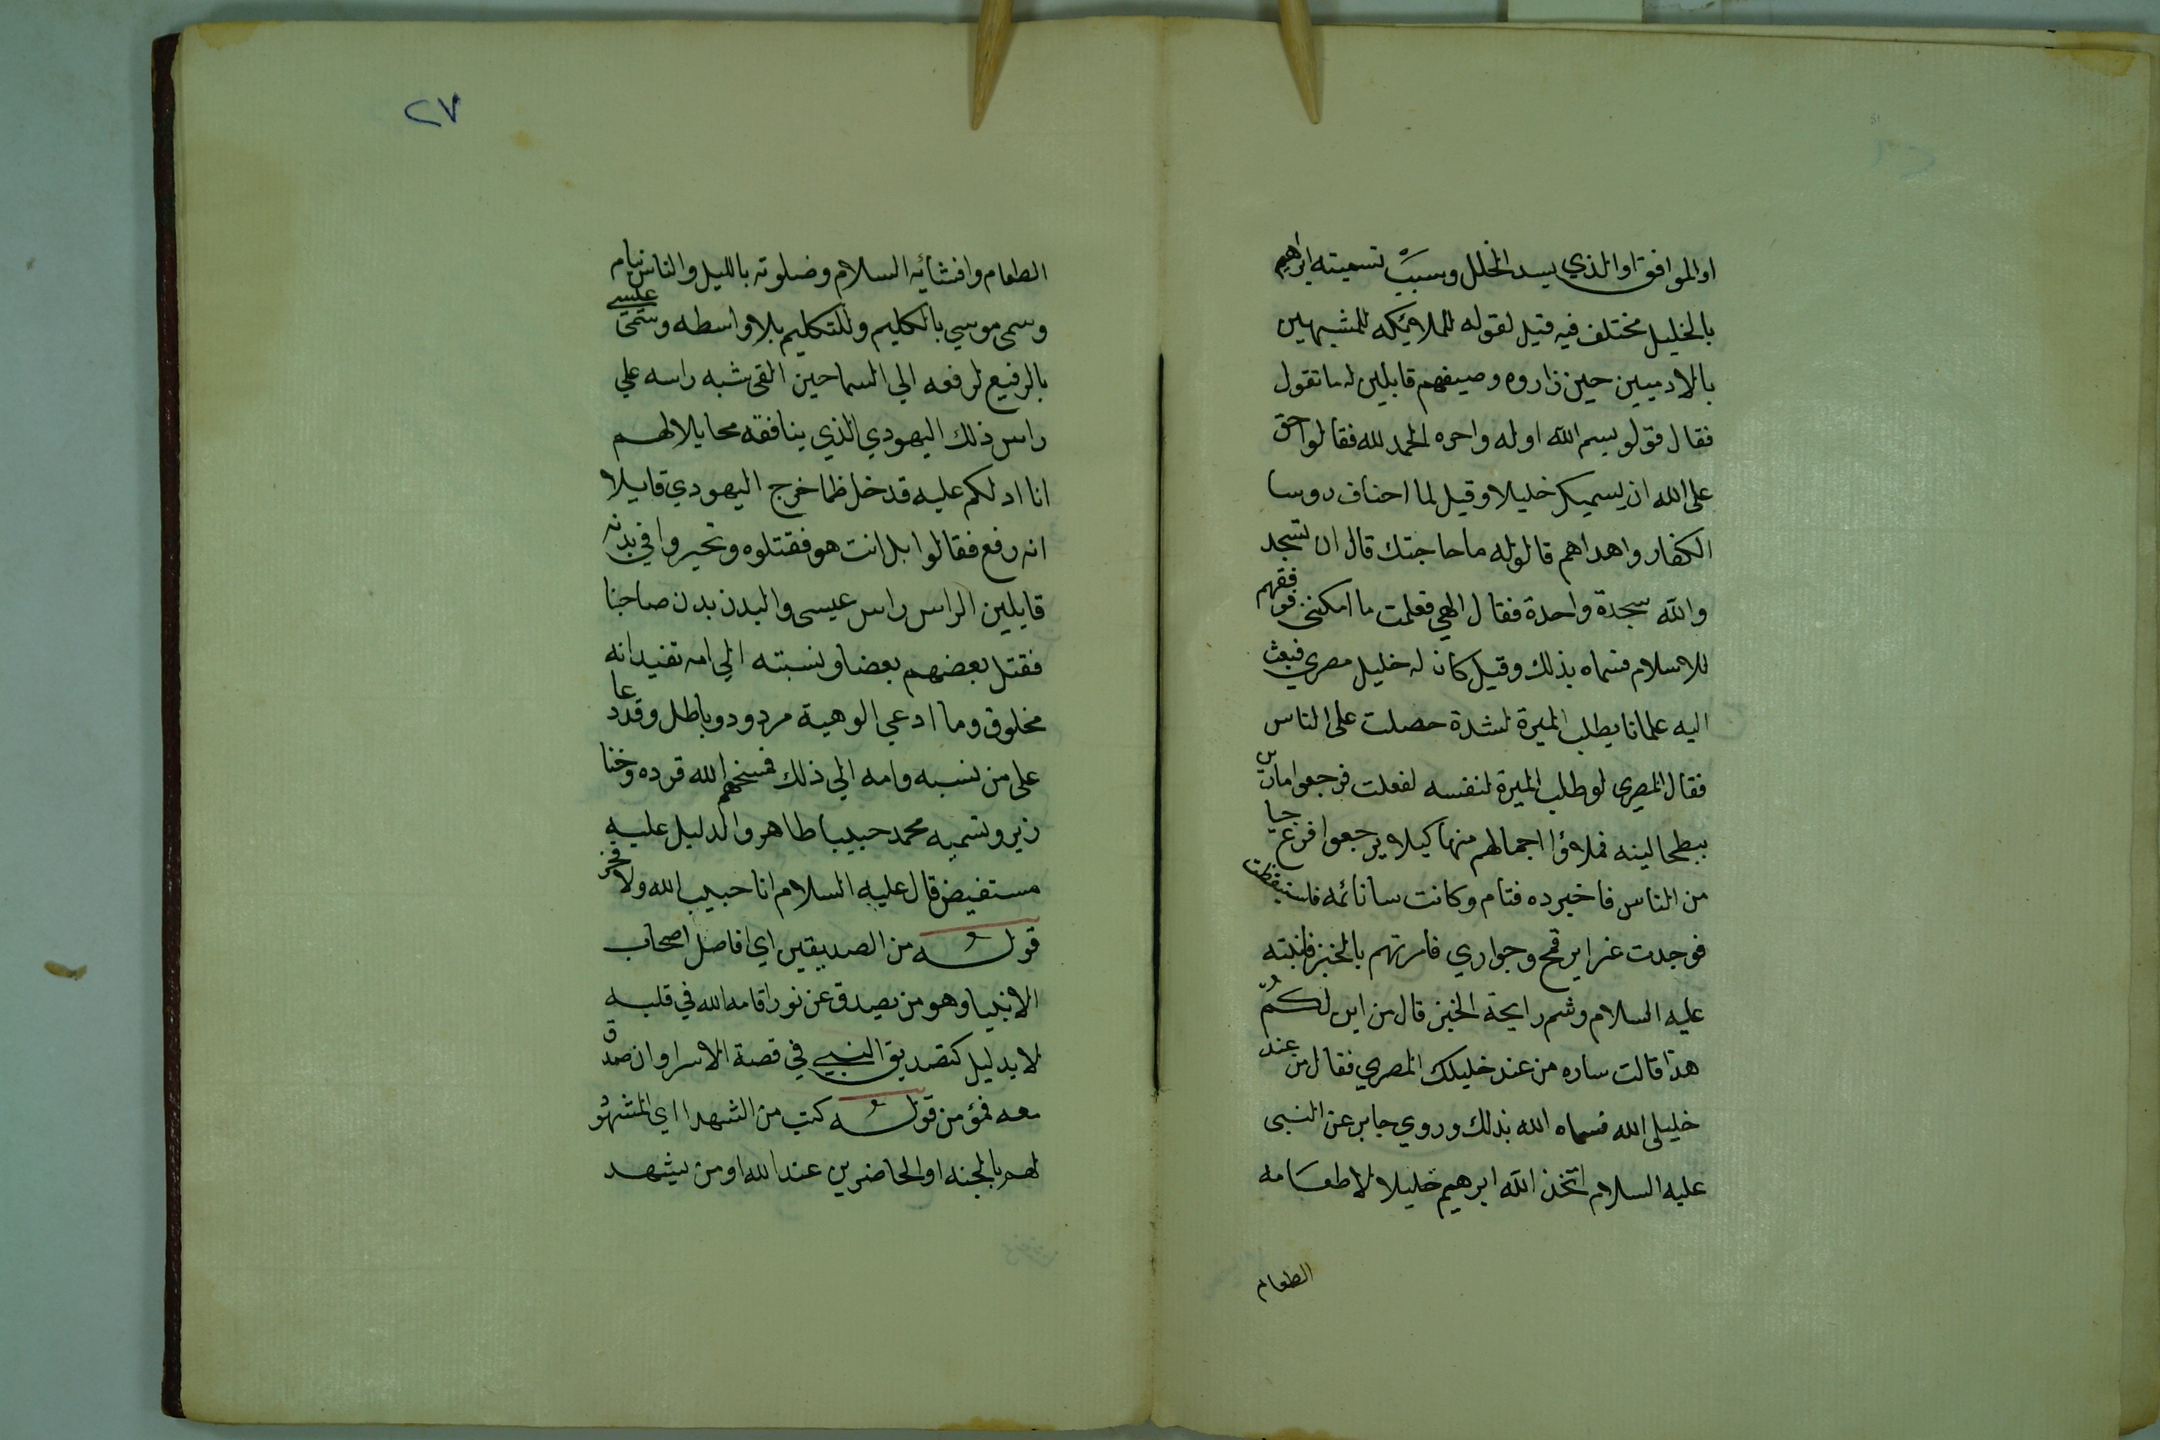 او الموافق او الذي يسد الخلل وسبب تسميته ابراهيم
بالخليل مختلف فيه قيل لقوله للملائكه المشبهين
بالادميين حين زاروه وضيفهم قايلين له ما تقول
فقال قولو بسم الله اوله واخره الحمد لله فقالوا حق
على الله ان يسميك خليلا وقيل لما اضاف روسا
الكفار واهداهم قالوا له ما حاجتك قال ان تسجد
والله سجدة واحدة فقال الهي فعلت ما امكنني فوفقهم
للاسلام فسماه بذلك وقيل كان له خليل مصري فبعث
اليه غلمانا يطلب الميرة لشدة حصلت على الناس
فقال المصري لو طلب الميرة لنفسه لفعلت فرجعوا مارين
ببطحا لينه فملاؤا اجمالهم منها كيلا يرجعوا فرغ حيا
من الناس فاخبرده فنام وكانت سا نائمه فاستيقظت
فوجدت غراير قمح وجواري فامرتهم بالخبز فانتبه
عليه السلام وشم رايحة الخبز قال من اين لكم
هذا قالت ساره من عند خليلك المصري فقال من عند
خليلي الله فسماه الله بذلك وروي جابر عن النبي
عليه السلام اتخذ الله ابرهيم خليلا لاطعامه
الطعام
٢٧
الطعام وافشائه السلام وصلوته بالليل والناس نيام
وسمى موسي بالكليم وللتكليم بلا واسطه وسمى عيسى
بالرفيع لرفعه الي السما حين القى شبه راسه علي
راس ذلك اليهودي الذي ينافقه محايلا لهم
انا ادلكم عليه قدخل فما خرج اليهودي قايلا
انه رفع فقالوا بل انت هو فقتلوه وتحيروا في بدنه
قايلين الراس راس عيسى والبدن بدن صاحبنا
فقتل بعضهم بعضا ونسبته الي امه تفيد انه
مخلوق وما ادعي الوهية مردود وباطل وقد دعا
على من نسبه وامه الي ذلك فمسخهم الله قرده وخنا
زير وتسميه محمد حبيبا ظاهر والدليل عليه
مستفيض قال عليه السلام انا حبيب الله ولا فخر
قوله من الصديقين اي افاضل اصحاب
الانبيا وهو من يصدق عن نور اقامه الله في قلبه
لا بدليل كتصديق النبي في قصة الاسرا وان صدق
معه فمؤمن قوله كتب من الشهدا اي المشهود
لهم بالجنه او الحاضرين عند الله او من يشهد